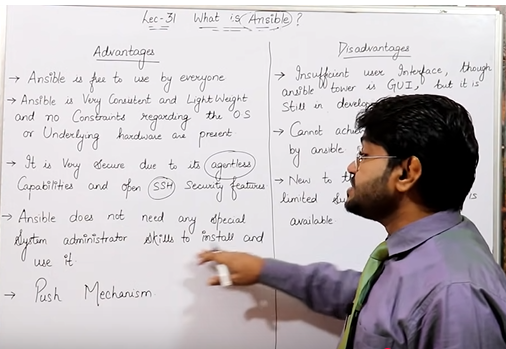 Lec-31 What is Ansible ?
Advantages
→ Ansible is free to use by everyone
→ Ansible is Very Consistent and Light Weight
and no Constraints regarding the OS
or Underlying hardware are present
→ It is Very Secure due to its agentless
Capabilities and open SSH Security features
→ Ansible does not need any special
System administrator skills to install and
use it
→ Push Mechanism
Disadvantages
→ Insufficient user Interface, though
ansible tower is GUI, but it is
Still in
→ Cannot
by ansible
→ New to
limited is
available